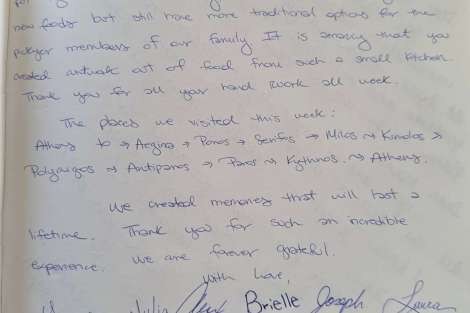 new foods but still have more traditional options for the
pickyer members of our family. It is amazing that you
created artwork out of food from such a small kitchen.
Thank you for all your hard work all week.
The places we visited this week:
Athens to → Aegina → Poros → Serifos → Milos → Kimolos →
Polyaigos → Antiparos → Paros → Kythnos → Athens.
We created memories that will last a
lifetime. Thank you for such an incredible
experience. We are forever grateful.
With Love,
Julia Brielle Joseph Laura